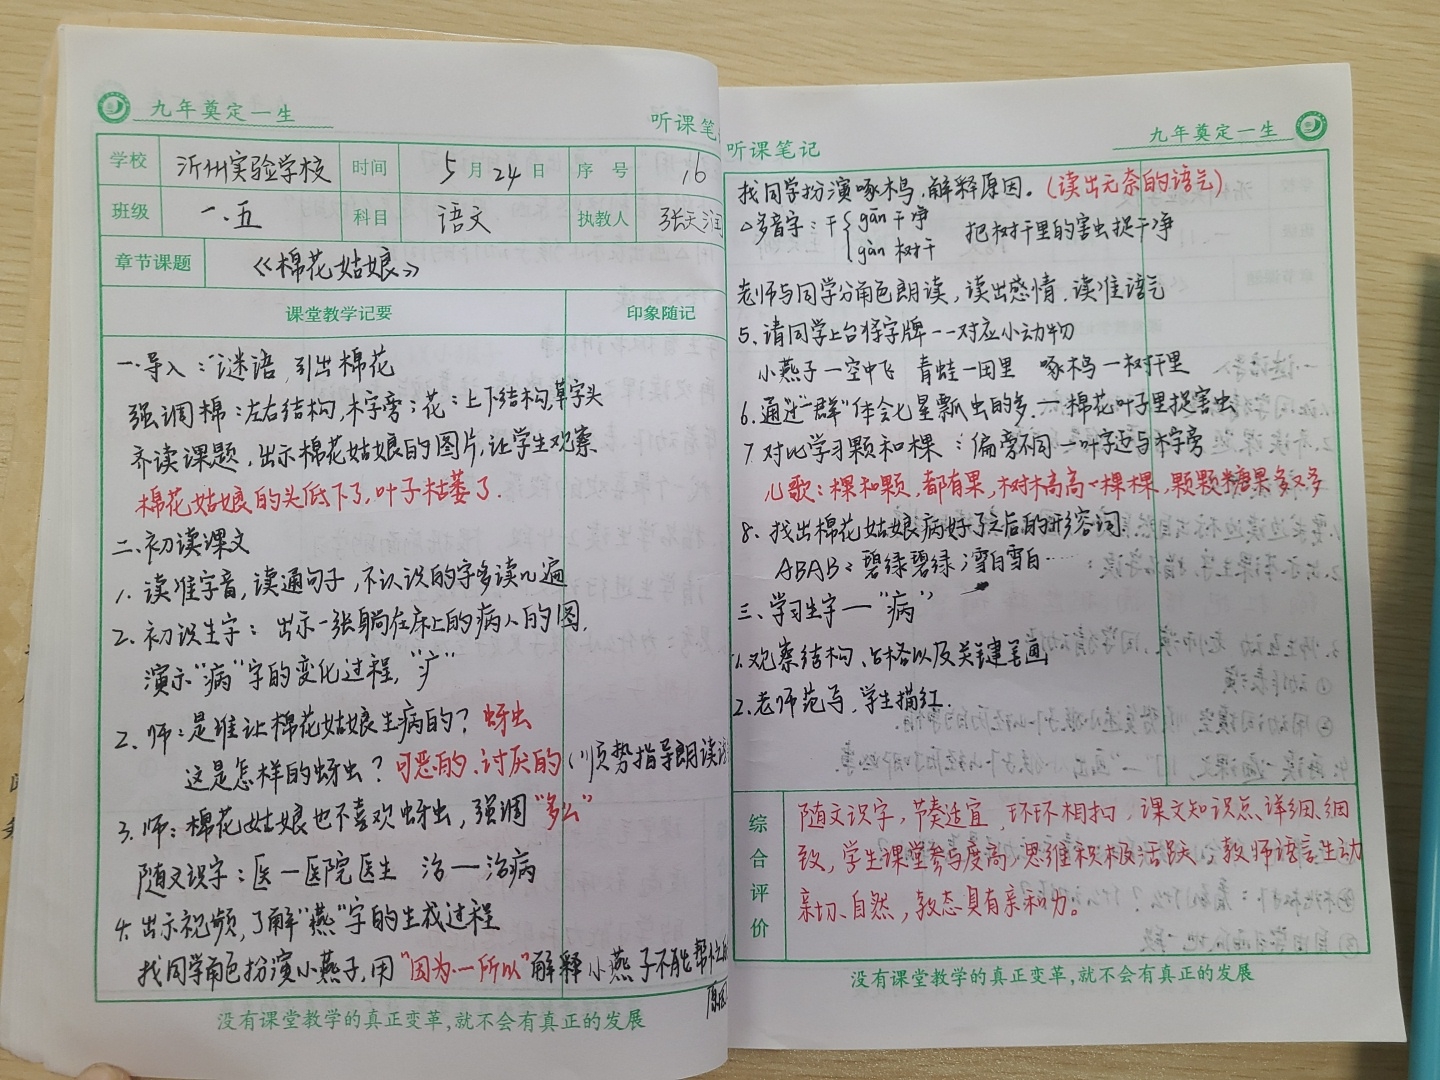 九年奠定一生
听课笔
学校 沂州实验学校 时间 5月24日 序号 16
班级 一.五 科目 语文 执教人 张天润
章节课题 《棉花姑娘》
课堂教学记要 印象随记
一.导入：谜语，引出棉花
强调棉：左右结构，木字旁；花：上下结构，草字头
齐读课题，出示棉花姑娘的图片，让学生观察
棉花姑娘的头低下了，叶子枯萎了.
二.初读课文
1. 读准字音，读通句子，不认识的字多读几遍
2. 初识生字：出示一张躺在床上的病人的图.
演示"病"字的变化过程，"疒"
2. 师：是谁让棉花姑娘生病的？蚜虫
这是怎样的蚜虫？可恶的、讨厌的（顺势指导朗读
3. 师：棉花姑娘也不喜欢蚜虫，强调"多么"
随文识字：医—医院 医生 治—治病
4. 出示视频，了解"燕"字的生成过程
找同学角色扮演小燕子，用"因为…所以"解释小燕子不能帮忙的
原因
没有课堂教学的真正变革，就不会有真正的发展
听课笔记
九年奠定一生
找同学扮演啄木鸟，解释原因。（读出无奈的语气）
△多音字：干{gān 干净
gàn 树干 把树干里的害虫捉干净
老师与同学分角色朗读，读出感情，读准语气
5. 请同学上台将字牌一一对应小动物
小燕子—空中飞 青蛙—田里 啄木鸟—树干里
6. 通过"一群"体会七星瓢虫的多.—棉花叶子里捉害虫
7. 对比学习颗和棵：偏旁不同—叶字边与木字旁
儿歌：棵和颗，都有果，树木高高一棵棵，颗颗糖果多又多
8. 找出棉花姑娘病好了之后的形容词.
ABAB：碧绿碧绿；雪白雪白……
三、学习生字—"病"
1. 观察结构、占格以及关键笔画
2. 老师范写，学生描红.
综合评价
随文识字，节奏适宜，环环相扣，课文知识点、详细、细
致，学生课堂参与度高，思维积极活跃，教师语言生动
亲切、自然，教态具有亲和力。
没有课堂教学的真正变革，就不会有真正的发展